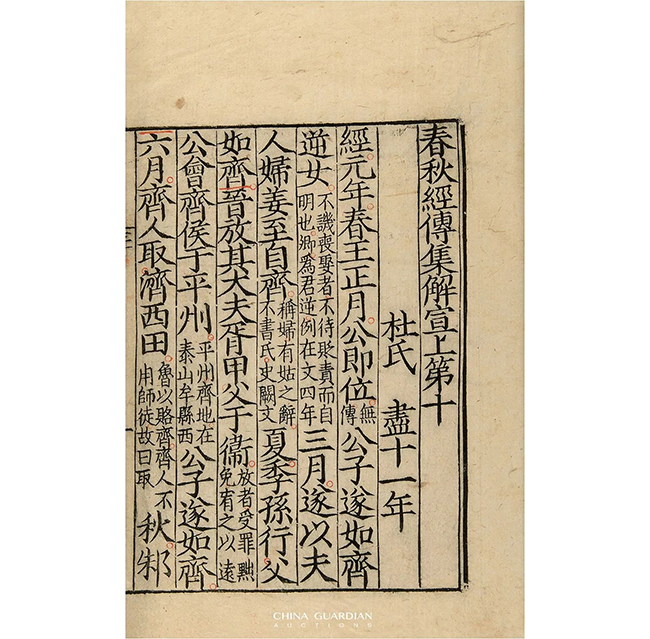 春秋經傳集解宣上第十
杜氏 盡十一年
經元年春王正月公即位無傳公子遂如齊
逆女不譏喪娶者不待貶責而自明也卿爲君逆例在文四年三月遂以夫
人婦姜至自齊稱婦有姑之辭不書氏史闕文夏季孫行父
如齊晉放其大夫胥甲父于衞放者受罪黜免宥之以遠
公會齊侯于平州平州齊地在泰山牟縣西公子遂如齊
六月齊人取濟西田魯以賂齊齊人不用師徒故曰取秋邾
CHINA GUARDIAN
AUCTIONS